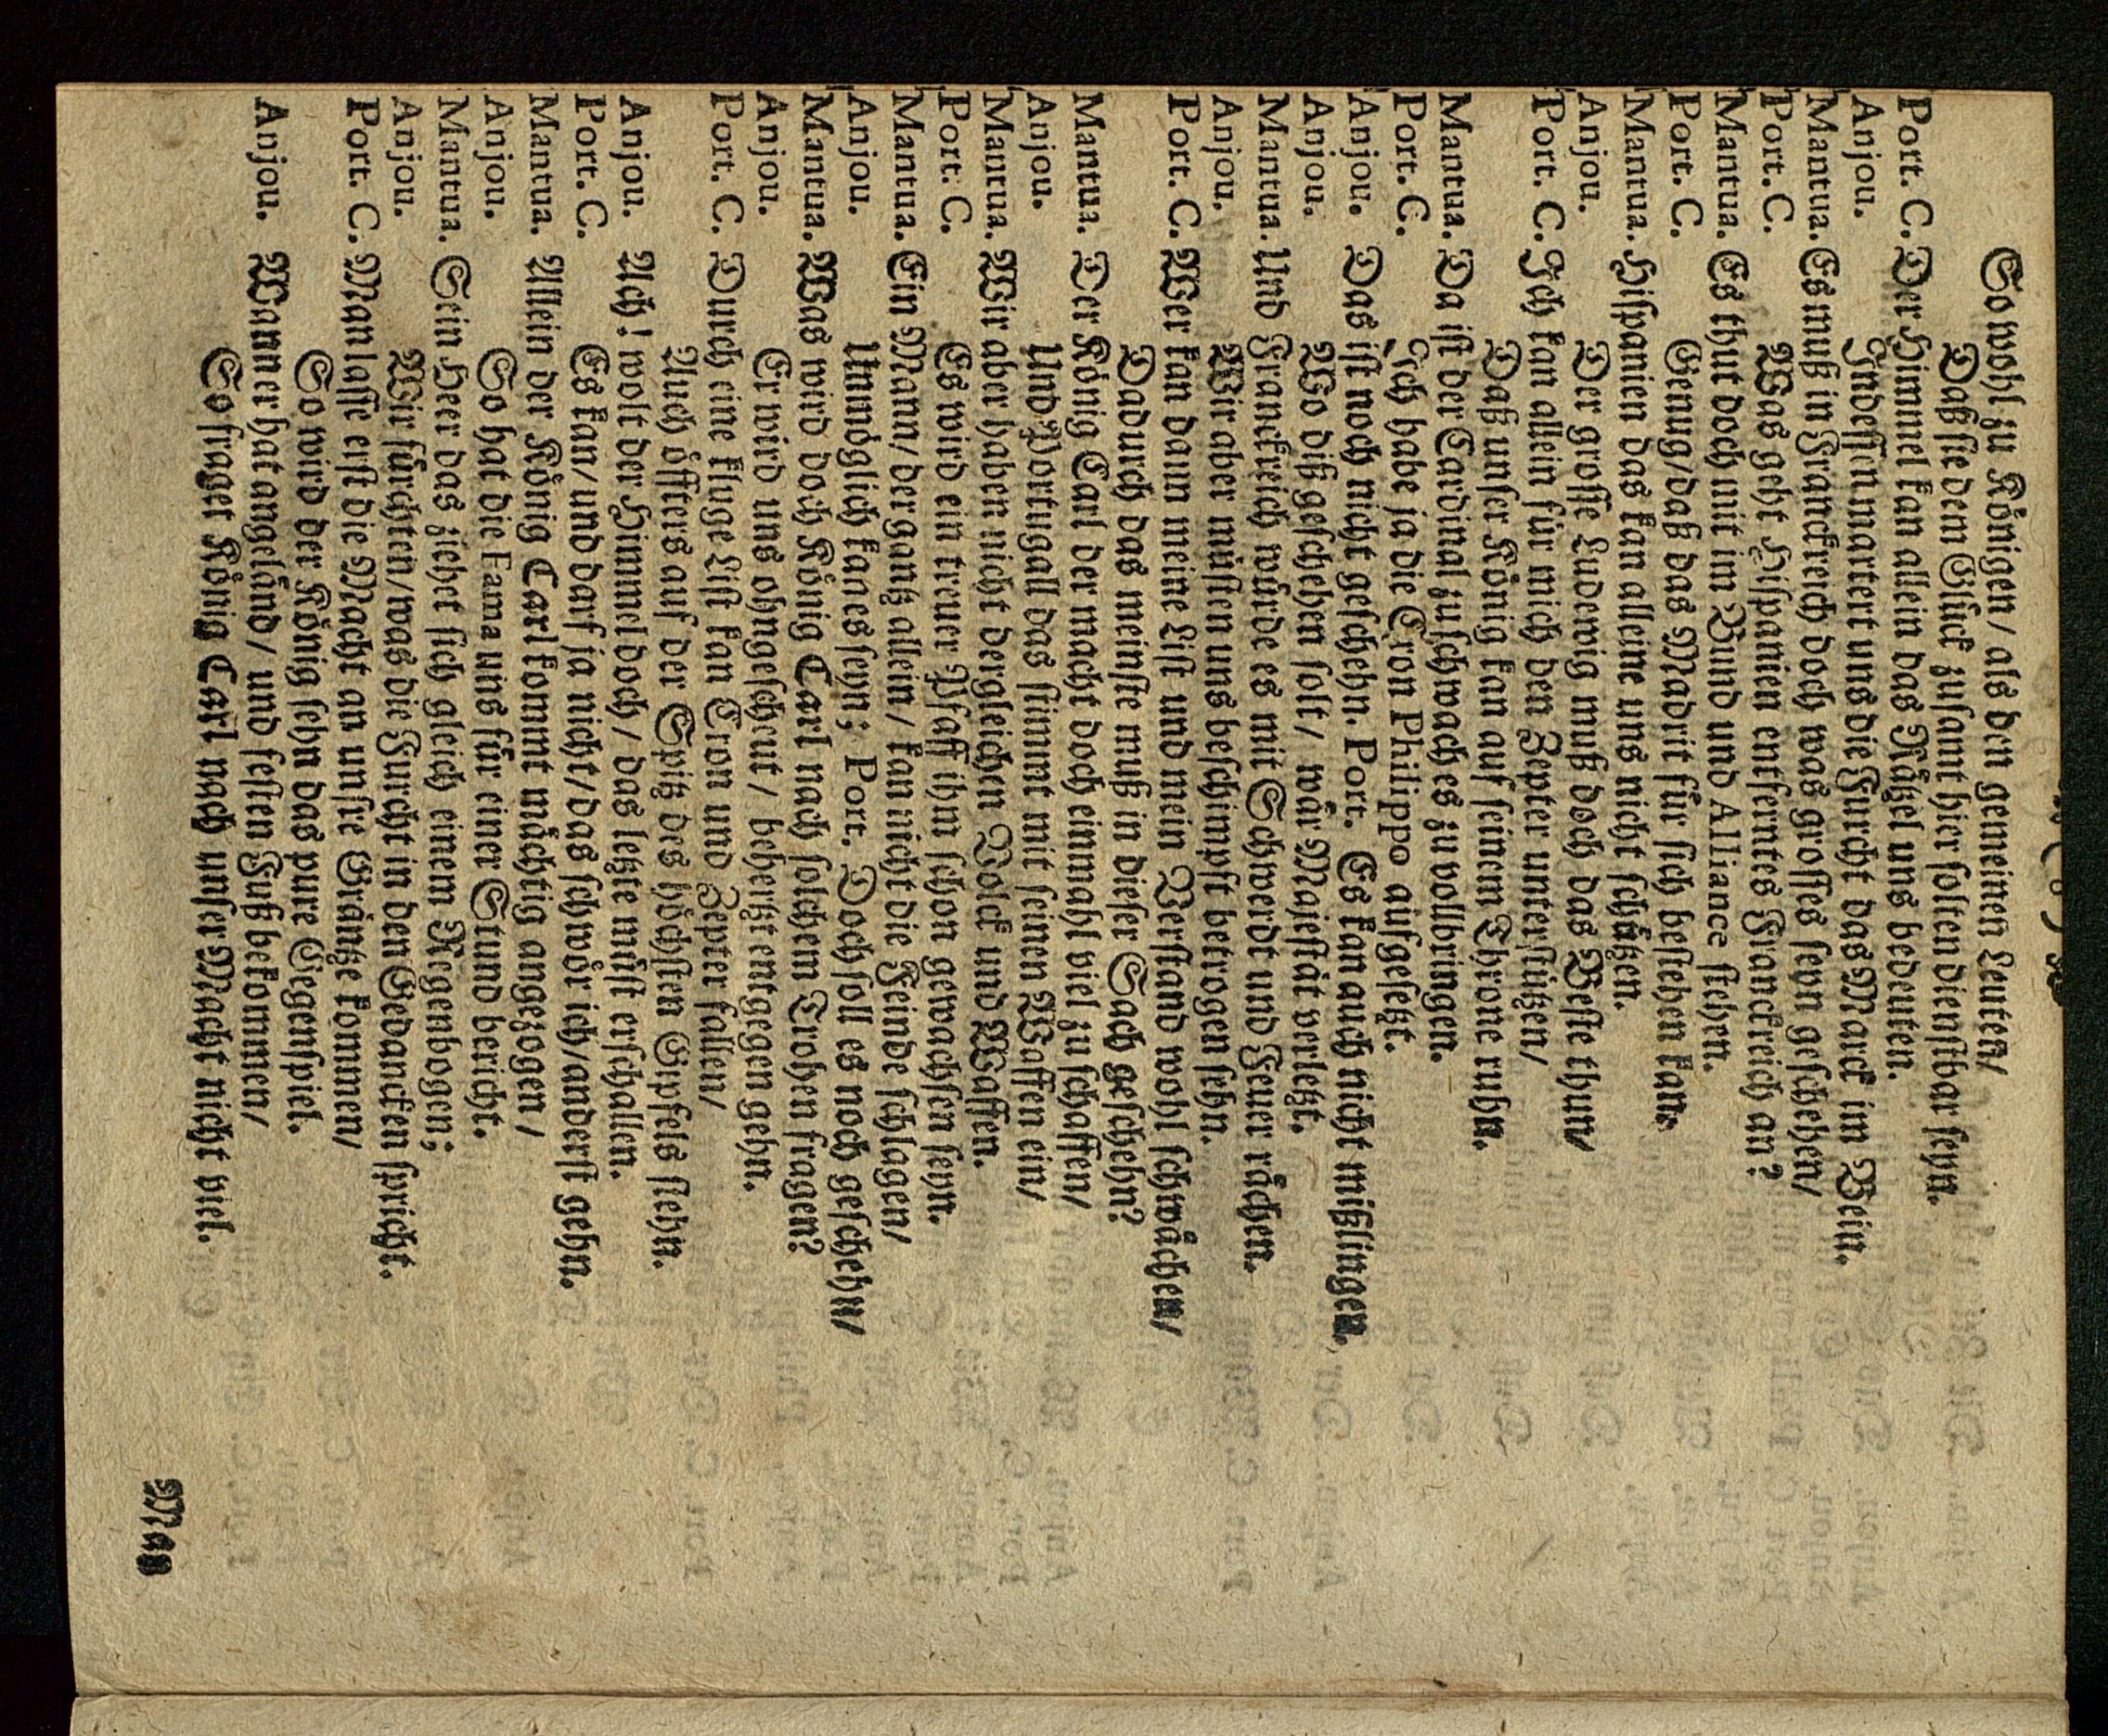 So wohl zu Königen / als den gemeinen Leuten /
Daß sie dem Glück zusamt hier solten dienstbar seyn.
Port. C. Der Himmel kan allein das Rätzel uns bedeuten.
Anjou. Indessin martert uns die Furcht das Marck im Bein.
Mantua. Es muß in Franckreich doch was grosses seyn geschehen /
Port. C. Was geht Hispanien entferntes Franckreich an?
Mantua. Es thut doch mit im Bund und Alliance stehen.
Port. C. Genug / daß das Madrit für sich bestehen kan.
Mantua. Hispanien das kan alleine uns nicht schützen.
Anjou. Der grosse Ludewig muß doch das Beste thun /
Port. C. Ich kan allein für mich den Zepter unterstützen /
Daß unser König kan auf seinem Throne ruhn.
Mantua. Da ist der Cardinal zu schwach es zu vollbringen.
Port. C. Ich habe ja die Cron Philippo aufgesetzt.
Anjou. Das ist noch nicht geschehn. Port. Es kan auch nicht mißlingen.
Anjou. Wo diß geschehen solt / wär Majestät verletzt.
Mantua. Und Franckreich würde es mit Schwerdt und Feuer rächen.
Anjou. Wir aber müsten uns beschimpft betrogen sehn.
Port. C. Wer kan dann meine List und mein Verstand wohl schwächen /
Dadurch das meinste muß in dieser Sach geschehn?
Mantua. Der König Carl der macht doch einmahl viel zu schaffen /
Anjou. Und Portugall das stimmt mit seinen Waffen ein /
Mantua. Wir aber haben nicht dergleichen Volck und Waffen.
Port. C. Es wird ein treuer Pfaff ihm schon gewachsen seyn.
Mantua. Ein Mann / der gantz allein / kan nicht die Feinde schlagen /
Anjou. Unmöglich kan es seyn; Port. Doch soll es noch geschehn /
Mantua. Was wird doch König Carl nach solchem Trohen fragen?
Anjou. Er wird uns ohngescheut / behertzt entgegen gehn.
Port. C. Durch eine kluge List kan Cron und Zepter fallen /
Auch öffters auf der Spitz des höchsten Gipfels stehn.
Anjou. Ach! wolt der Himmel doch / das letzte müst erschallen.
Port. C. Es kan / und darf ja nicht / das schwör ich / anderst gehn.
Mantua. Allein der König Carl kommt mächtig angezogen /
Anjou. So hat die Fama uns für einer Stund bericht.
Mantua. Sein Heer das ziehet sich gleich einem Regenbogen;
Anjou. Wir fürchten / was die Furcht in den Gedancken spricht.
Port. C. Man lasse erst die Macht an unsre Gräntze kommen /
So wird der König sehn das pure Gegenspiel.
Anjou. Wann er hat angeländ / und festen Fuß bekommen /
So fraget König Carl nach unser Macht nicht viel.
Man